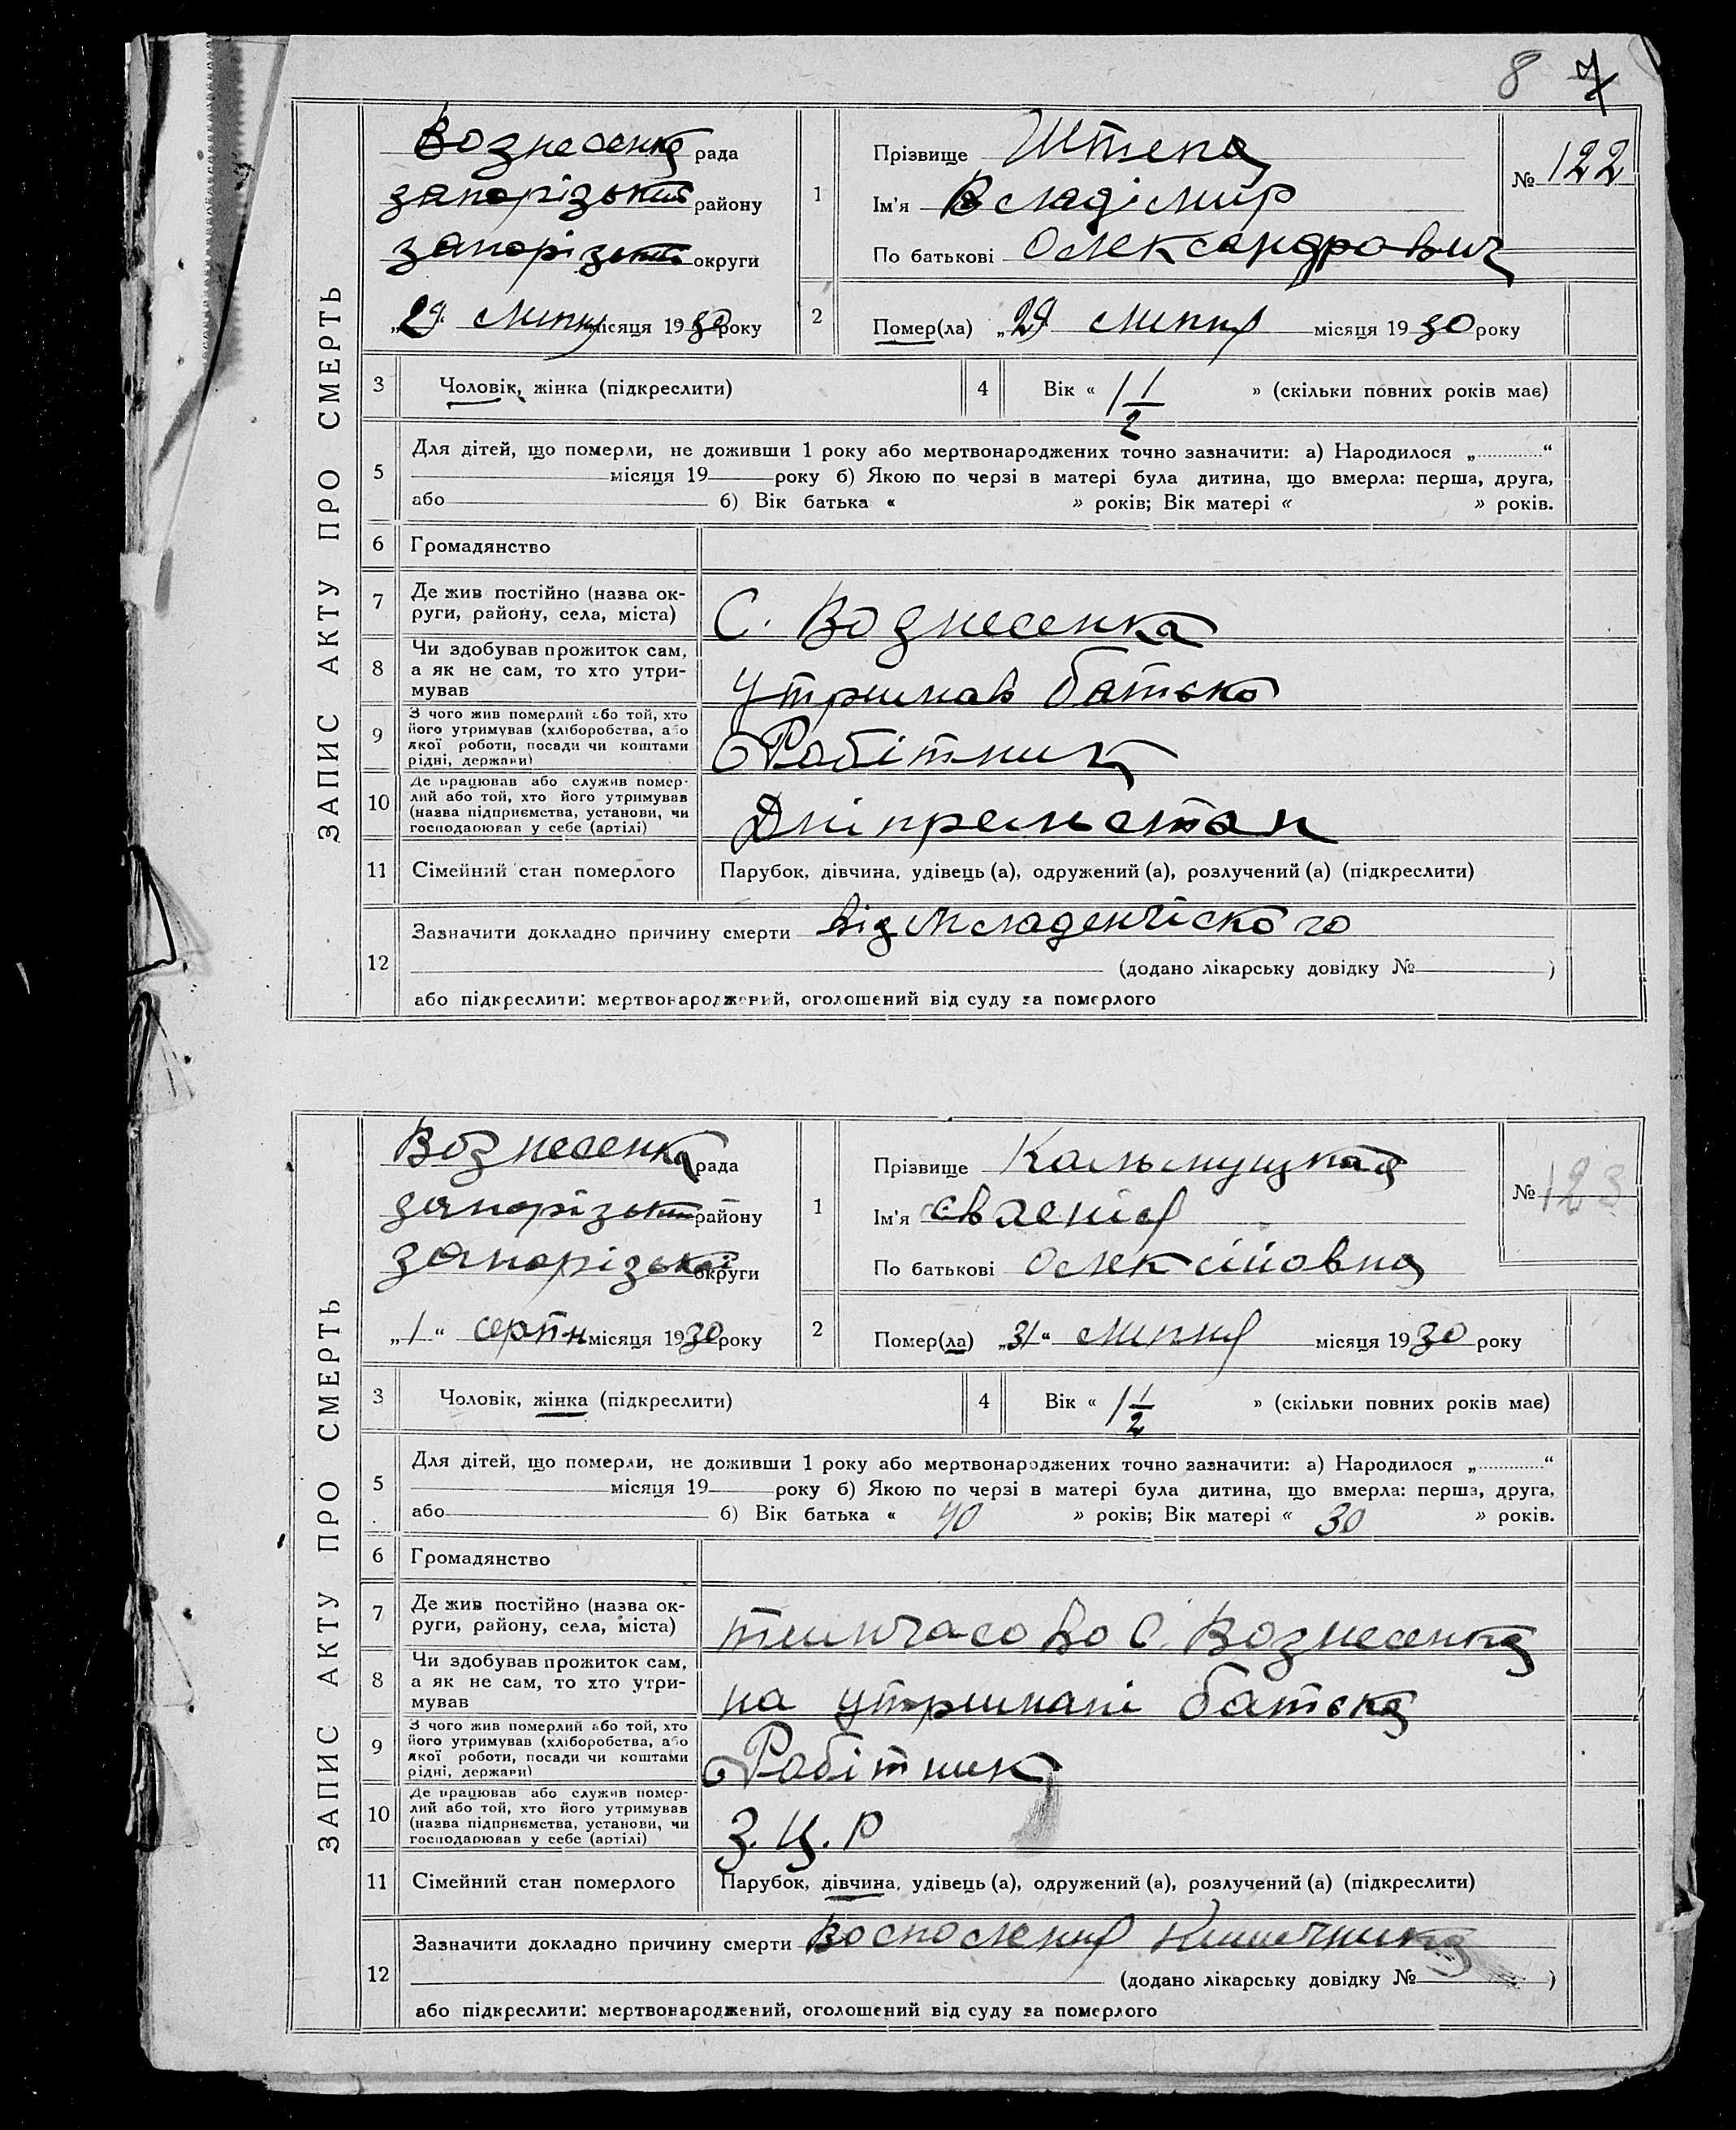 8 7
ЗАПИС АКТУ ПРО СМЕРТЬ
Вознесенка рада
запорізький району
запорізької округи
„29 липня місяця 1930 року
1
Прізвище Штепа
Ім'я Владімир
По батькові Олександрович
№ 122
2
Помер(ла) „29 липня місяця 1930 року
3 Чоловік, жінка (підкреслити)
4 Вік « 1 1/2 » (скільки повних років має)
5
Для дітей, що померли, не доживши 1 року або мертвонароджених точно зазначити: а) Народилося „............“
місяця 19 року б) Якою по черзі в матері була дитина, що вмерла: перша, друга,
або б) Вік батька « » років; Вік матері « » років.
6 Громадянство
7 Де жив постійно (назва ок-
руги, району, села, міста)
С. Вознесенка
8 Чи здобував прожиток сам,
а як не сам, то хто утри-
мував
утримав батько
9 З чого жив померлий або той, хто
його утримував (хліборобства, або
якої роботи, посади чи коштами
рідні, держави)
Робітник
10 Де працював або служив помер-
лий або той, хто його утримував
(назва підприємства, установи, чи
господарював у себе (артілі)
11 Сімейний стан померлого Парубок, дівчина, удівець (а), одружений (а), розлучений (а) (підкреслити)
12
Зазначити докладно причину смерти від младенчіского
(додано лікарську довідку № )
або підкреслити: мертвонароджений, оголошений від суду за померлого
ЗАПИС АКТУ ПРО СМЕРТЬ
Вознесенка рада
запорізький району
запорізької округи
„1“ серпн місяця 1930 року
1
Прізвище
Ім'я
По батькові Олексійовна
№ 123
2
Помер(ла) „31“ липня місяця 1930 року
3 Чоловік, жінка (підкреслити)
4 Вік « 1 1/2 » (скільки повних років має)
5
Для дітей, що померли, не доживши 1 року або мертвонароджених точно зазначити: а) Народилося „............“
місяця 19 року б) Якою по черзі в матері була дитина, що вмерла: перша, друга,
або б) Вік батька « 40 » років; Вік матері « 30 » років.
6 Громадянство
7 Де жив постійно (назва ок-
руги, району, села, міста)
тимчасово С. Вознесенка
8 Чи здобував прожиток сам,
а як не сам, то хто утри-
мував
на утримані батька
9 З чого жив померлий або той, хто
його утримував (хліборобства, або
якої роботи, посади чи коштами
рідні, держави)
Робітник
10 Де працював або служив помер-
лий або той, хто його утримував
(назва підприємства, установи, чи
господарював у себе (артілі)
З. Ц. Р
11 Сімейний стан померлого Парубок, дівчина, удівець (а), одружений (а), розлучений (а) (підкреслити)
12
Зазначити докладно причину смерти Воспосления Кишечника
(додано лікарську довідку № )
або підкреслити: мертвонароджений, оголошений від суду за померлого